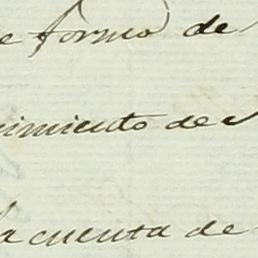 e forma de
imiento de
la cuenta de